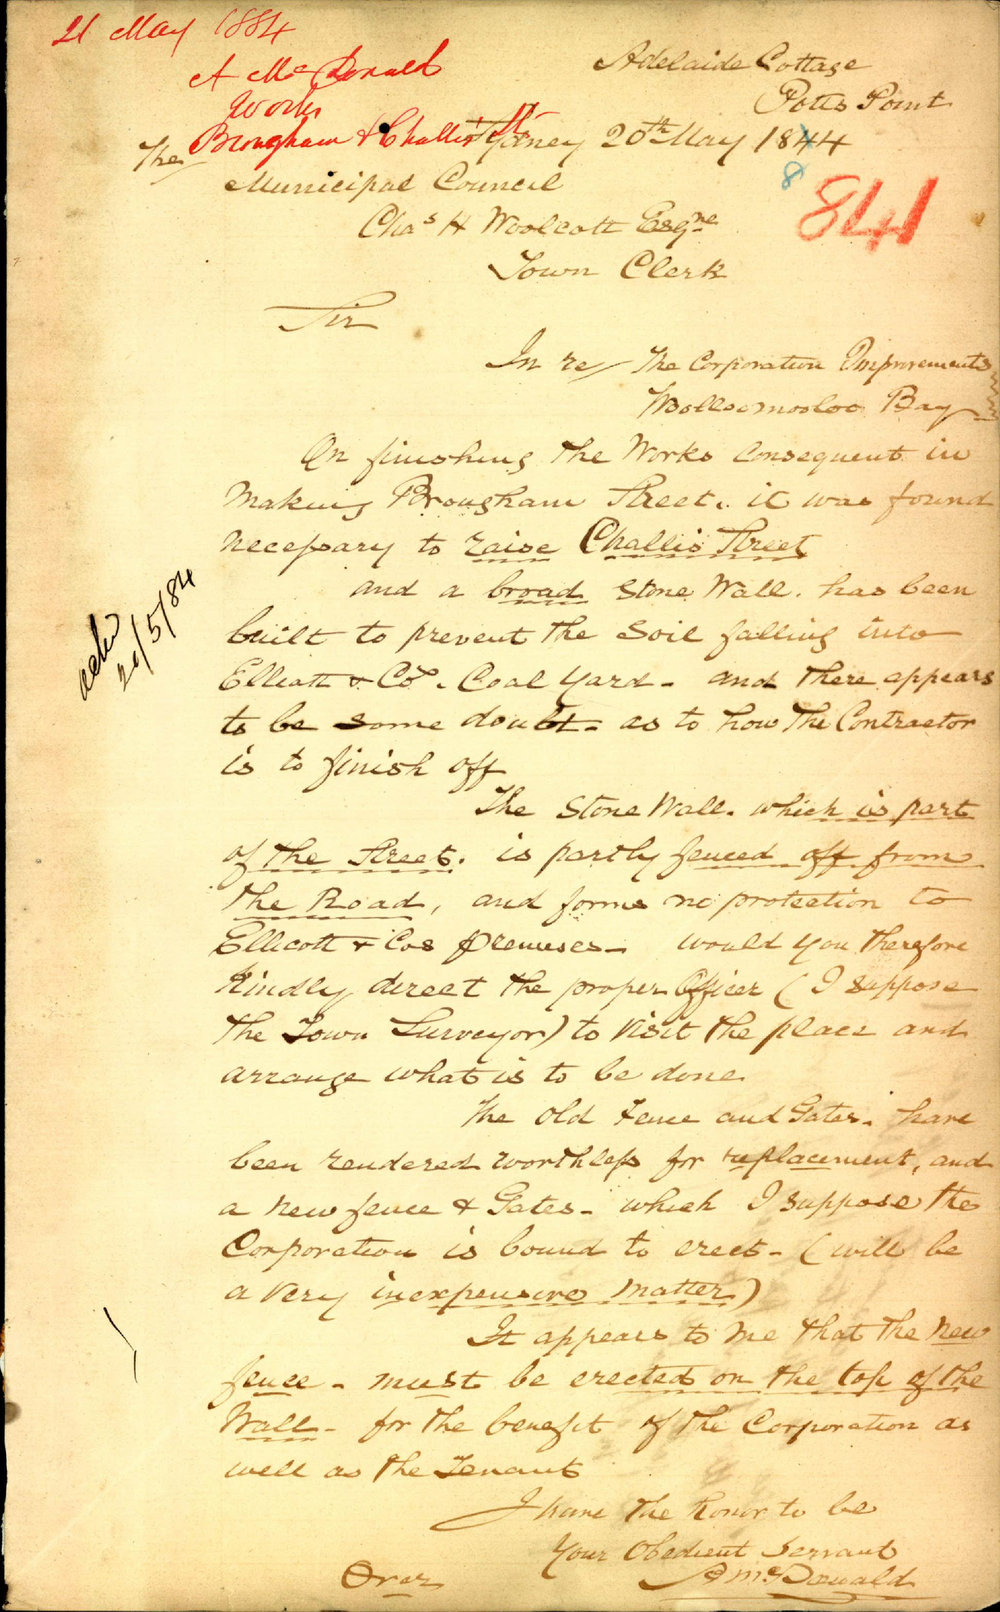 21 May 1884
A McDonald
Works
Brougham & Challis St
Adelaide Cottage
Potts Point
Sydney 20th May 1844
8
841
The
Municipal Council
Chas H Woolcott Esqre
Town Clerk
Sir
In re/ The Corporation Improvements
Woolloomooloo Bay
On finishing the Works consequent in
Making Brougham Street. it was found
necessary to raise Challis Street
and a broad Stone Wall. has been
built to prevent the Soil falling into
Ellicott & Co. Coal Yard - and there appears
to be some doubt - as to how The Contractor
is to finish off
The Stone Wall. which is part
of the Street. is partly fenced off from
the Road, and forms no protection to
Ellicott & Cos premises - would you therefore
Kindly direct the proper Officer (I suppose
the Town Surveyor) to visit the place and
arrange what is to be done
The Old Fence and Gates. have
been rendered worthless for replacement, and
a new fence & Gates - which I suppose the
Corporation is bound to erect - (will be
a very inexpensive matter)
It appears to me that the new
fence - must be erected on the top of the
Wall - for the benefit of the Corporation as
well as the Tenant
I have the honor to be
Your Obedient Servant
A McDonald
Over
21/5/84